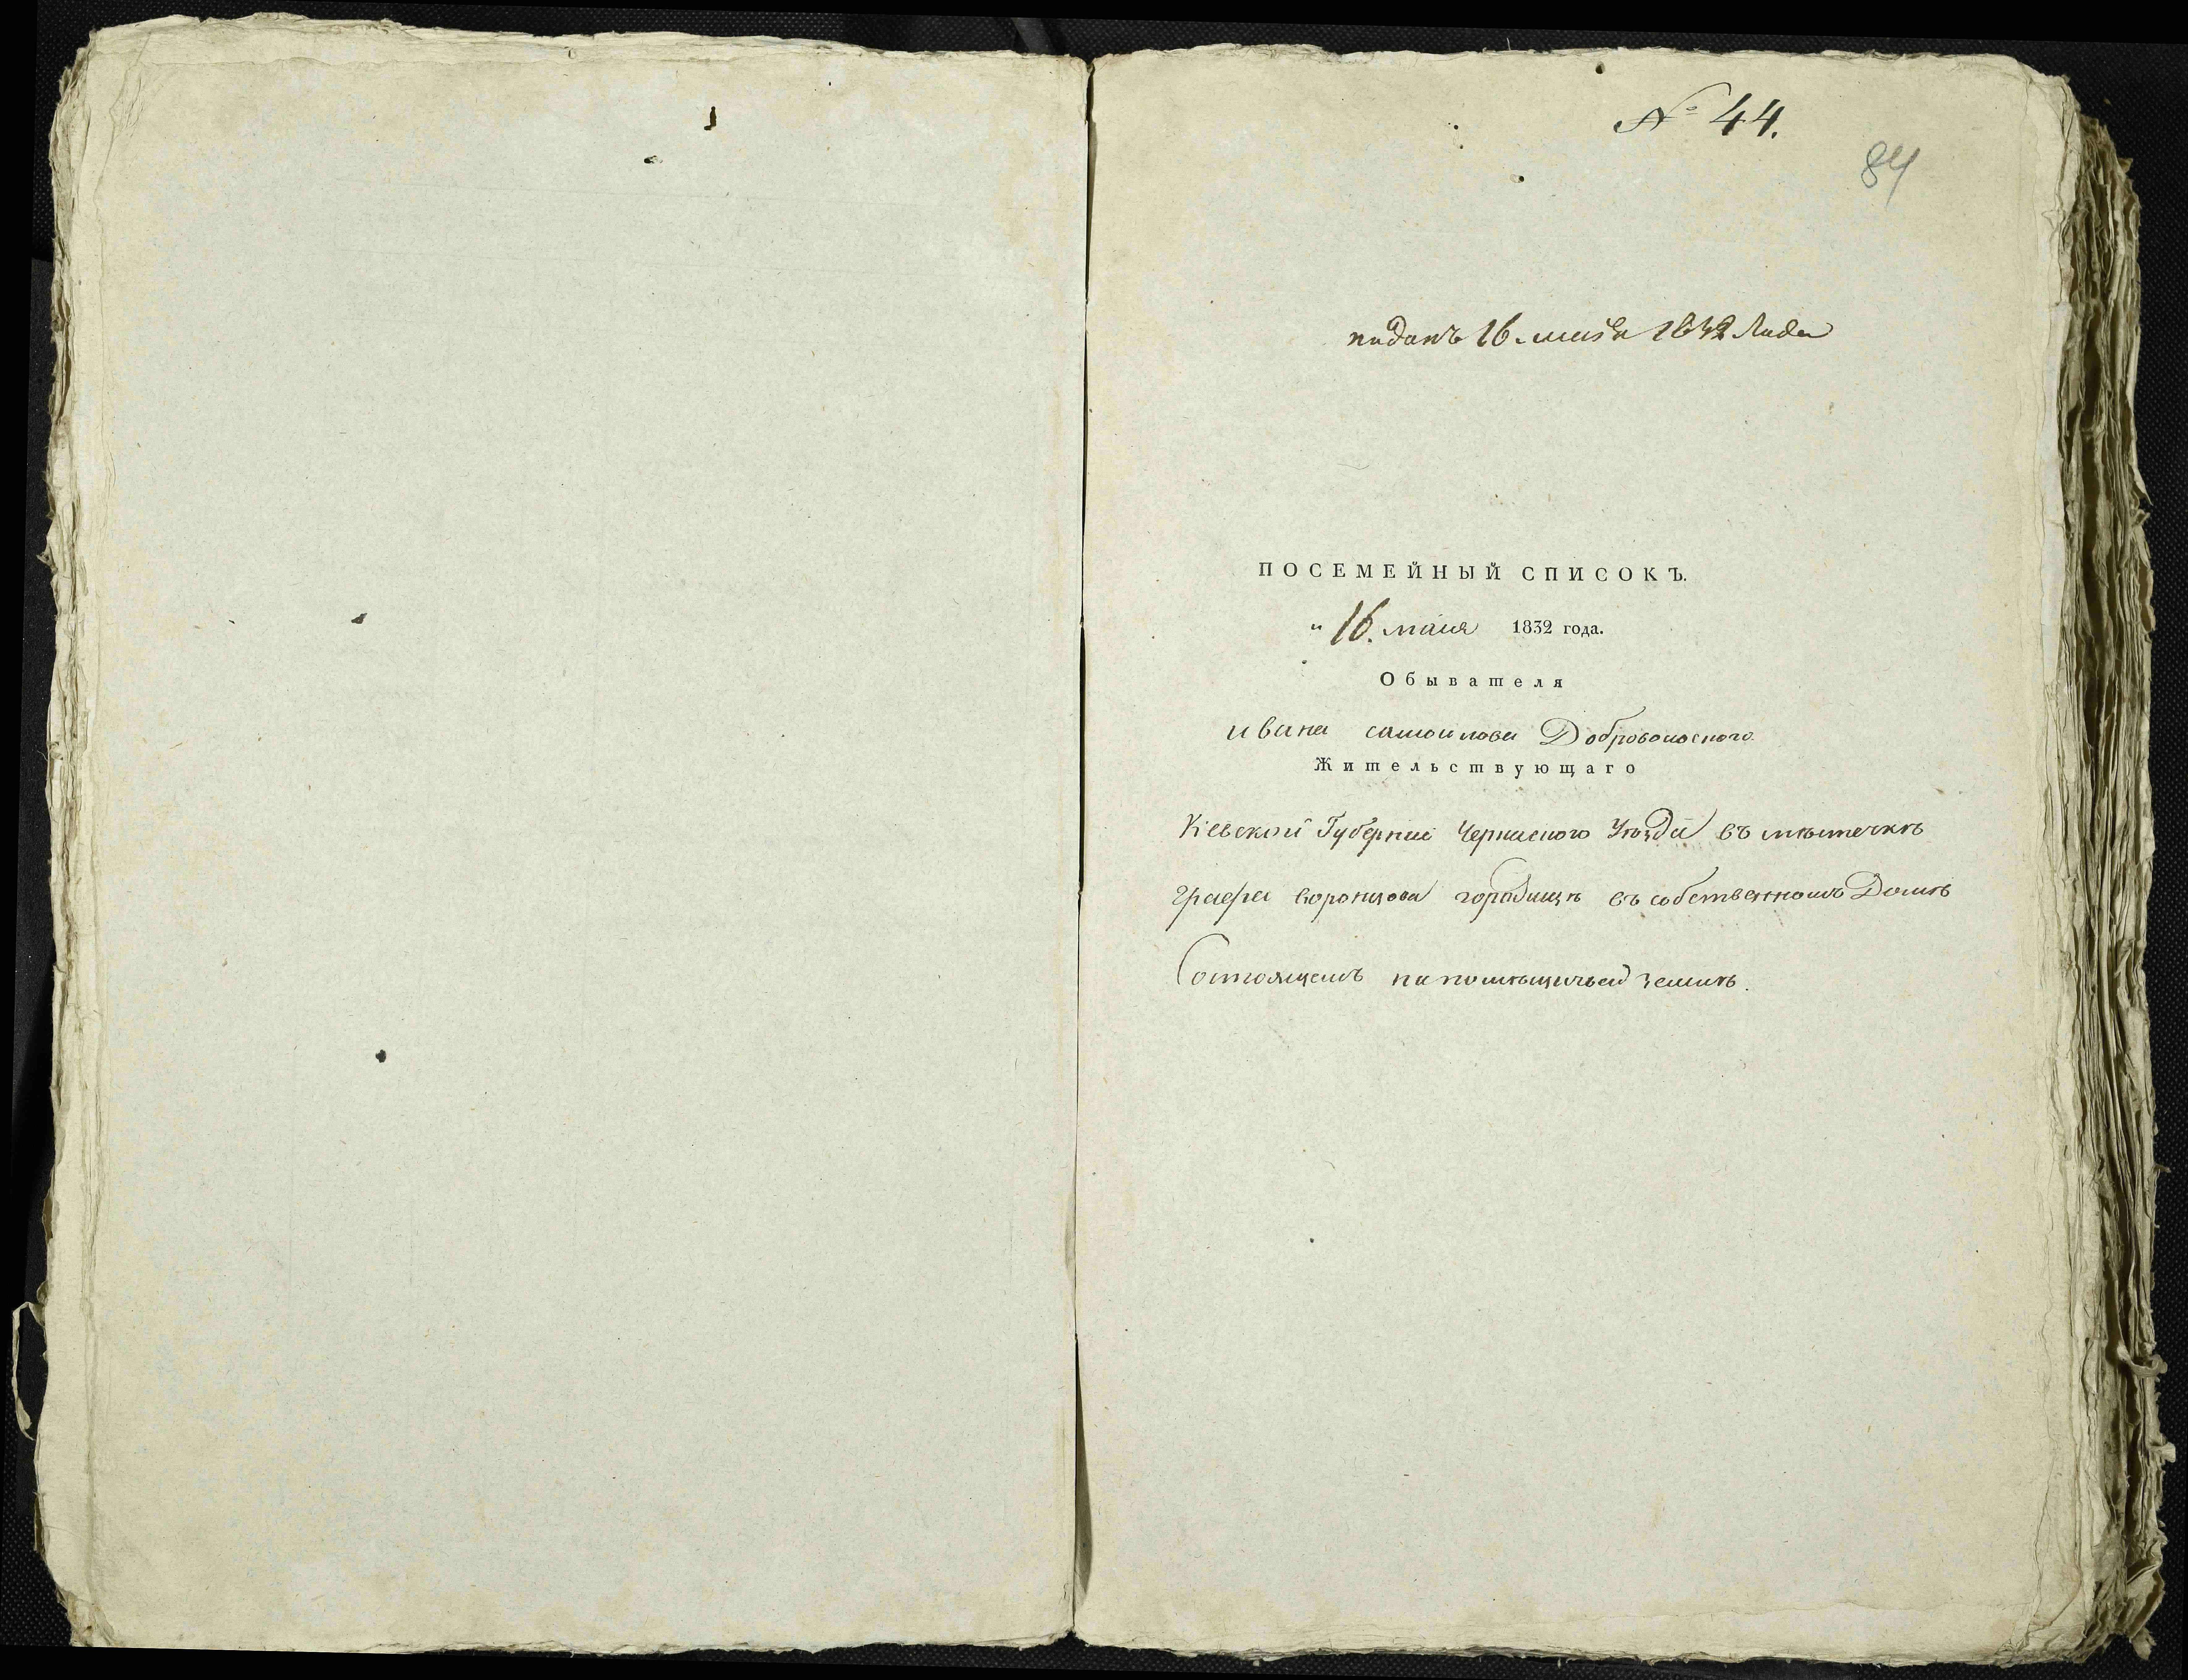 № 44.
84
поданъ 16. маія 1832 года
ПОСЕМЕЙНЫЙ СПИСОКЪ.
„ 16. маия 1832 года.
Обывателя
ивана самоилова Добровольского
Жительствующаго
Кіевской Губерніи Черкаского Уѣзда въ мѣстечкѣ
графа воронцова городищѣ въ собственномъ Домѣ
Состоящемъ на помѣщичьей землѣ.